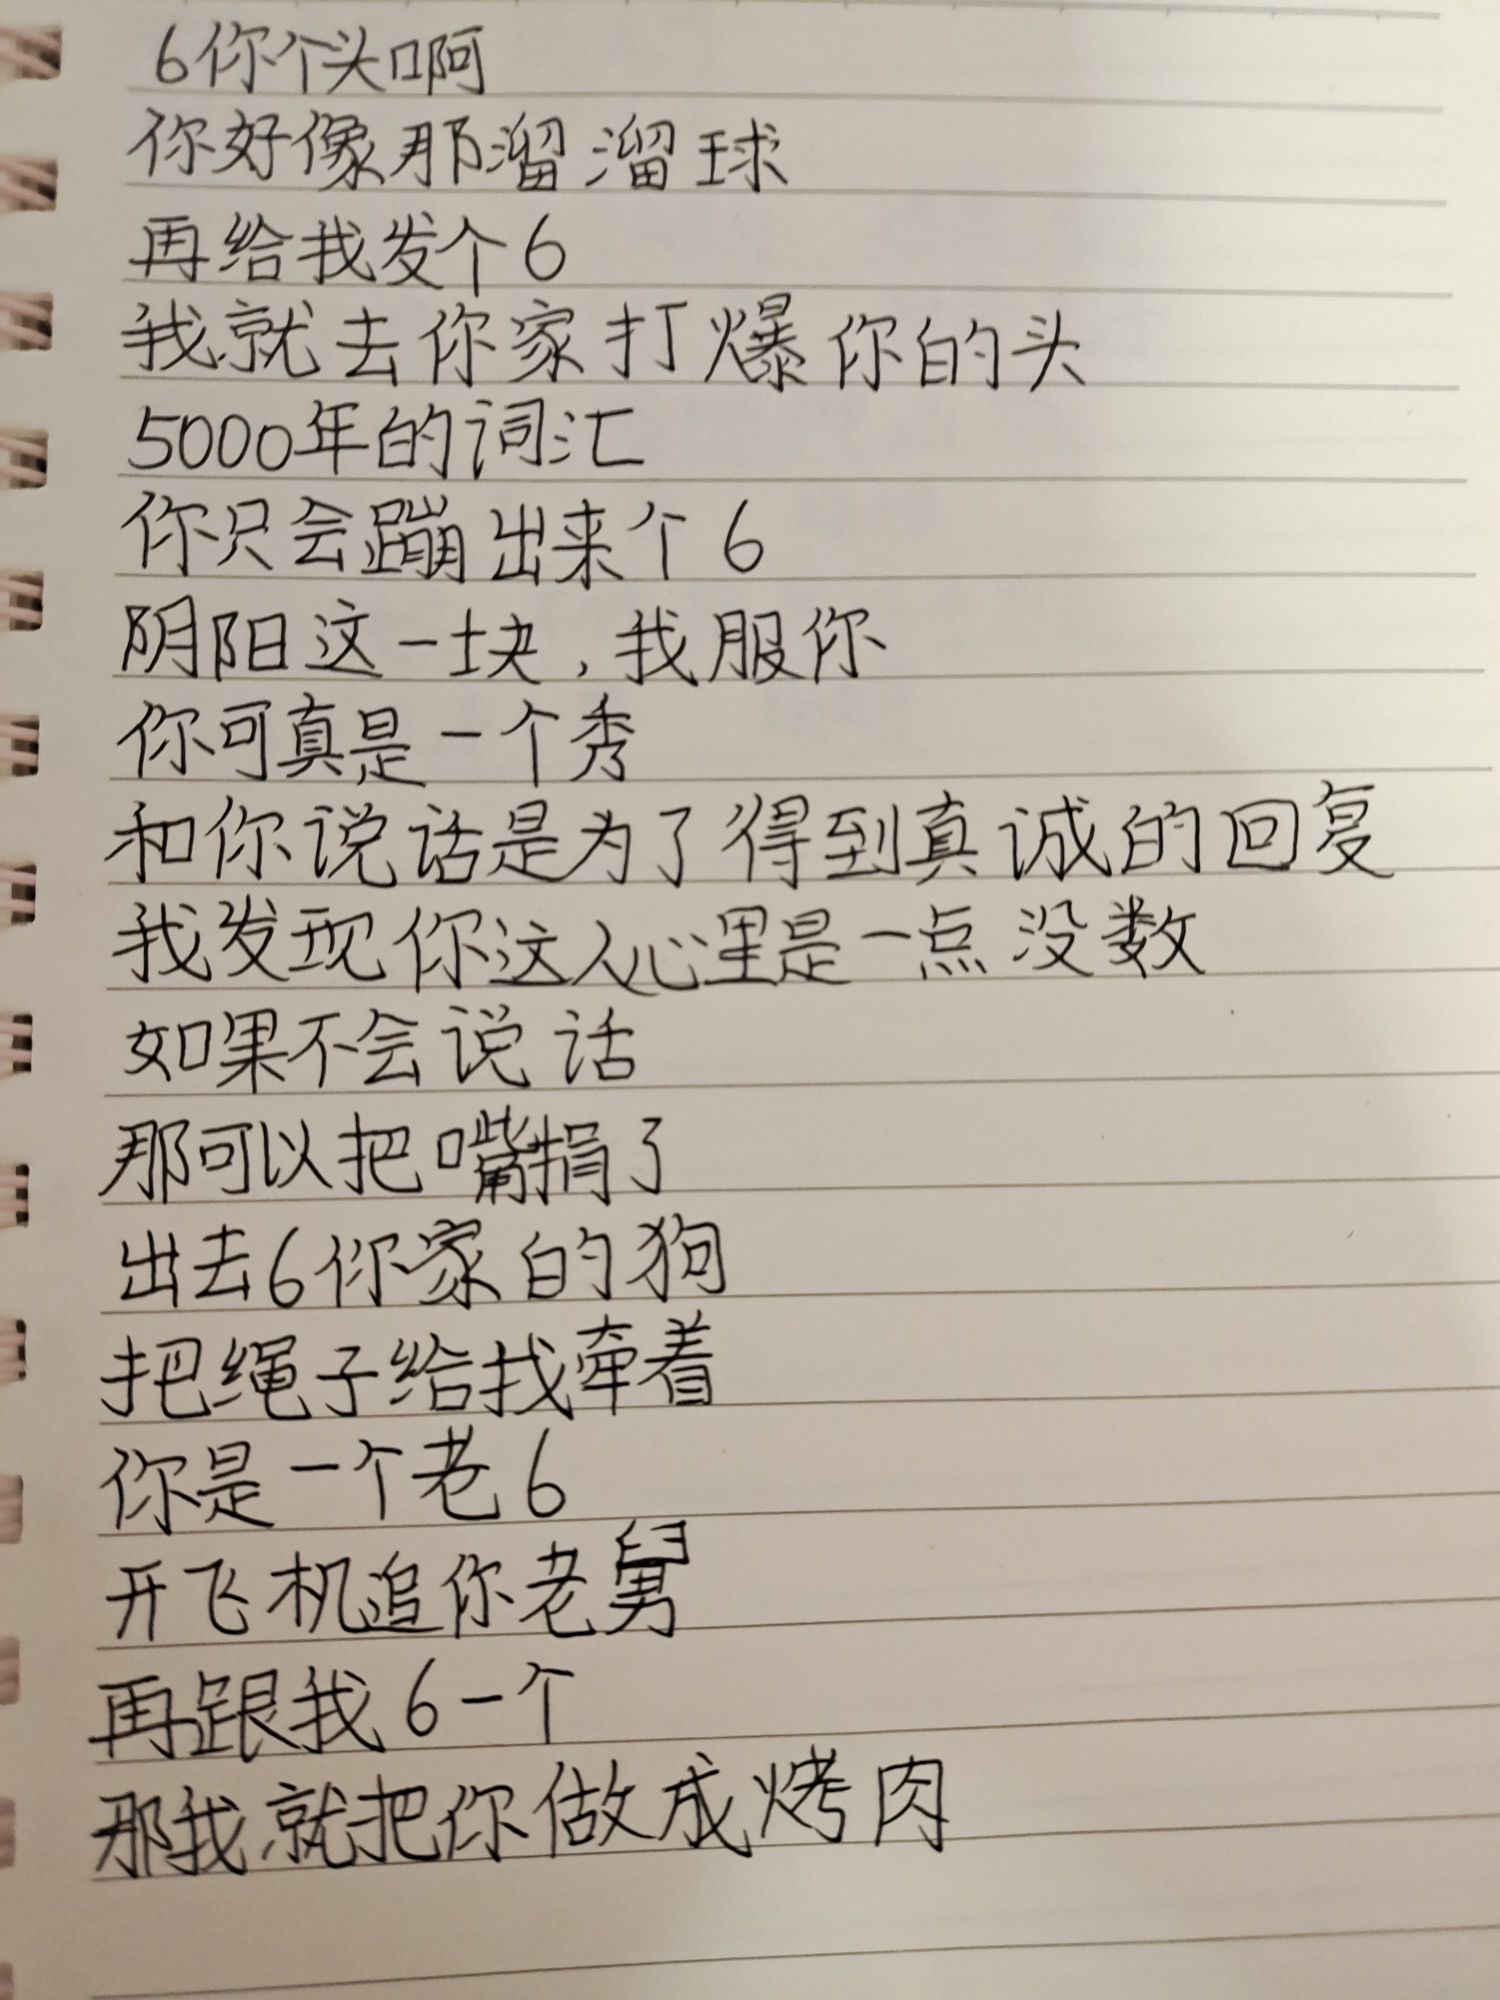 6你个头啊
你好像那溜溜球
再给我发个6
我就去你家打爆你的头
5000年的词汇
你只会蹦出来个6
阴阳这一块,我服你
你可真是一个秀
和你说话是为了得到真诚的回复
我发现你这人心里是一点没数
如果不会说话
那可以把嘴捐了
出去6你家的狗
把绳子给我牵着
你是一个老6
开飞机追你老舅
再跟我6一个
那我就把你做成烤肉